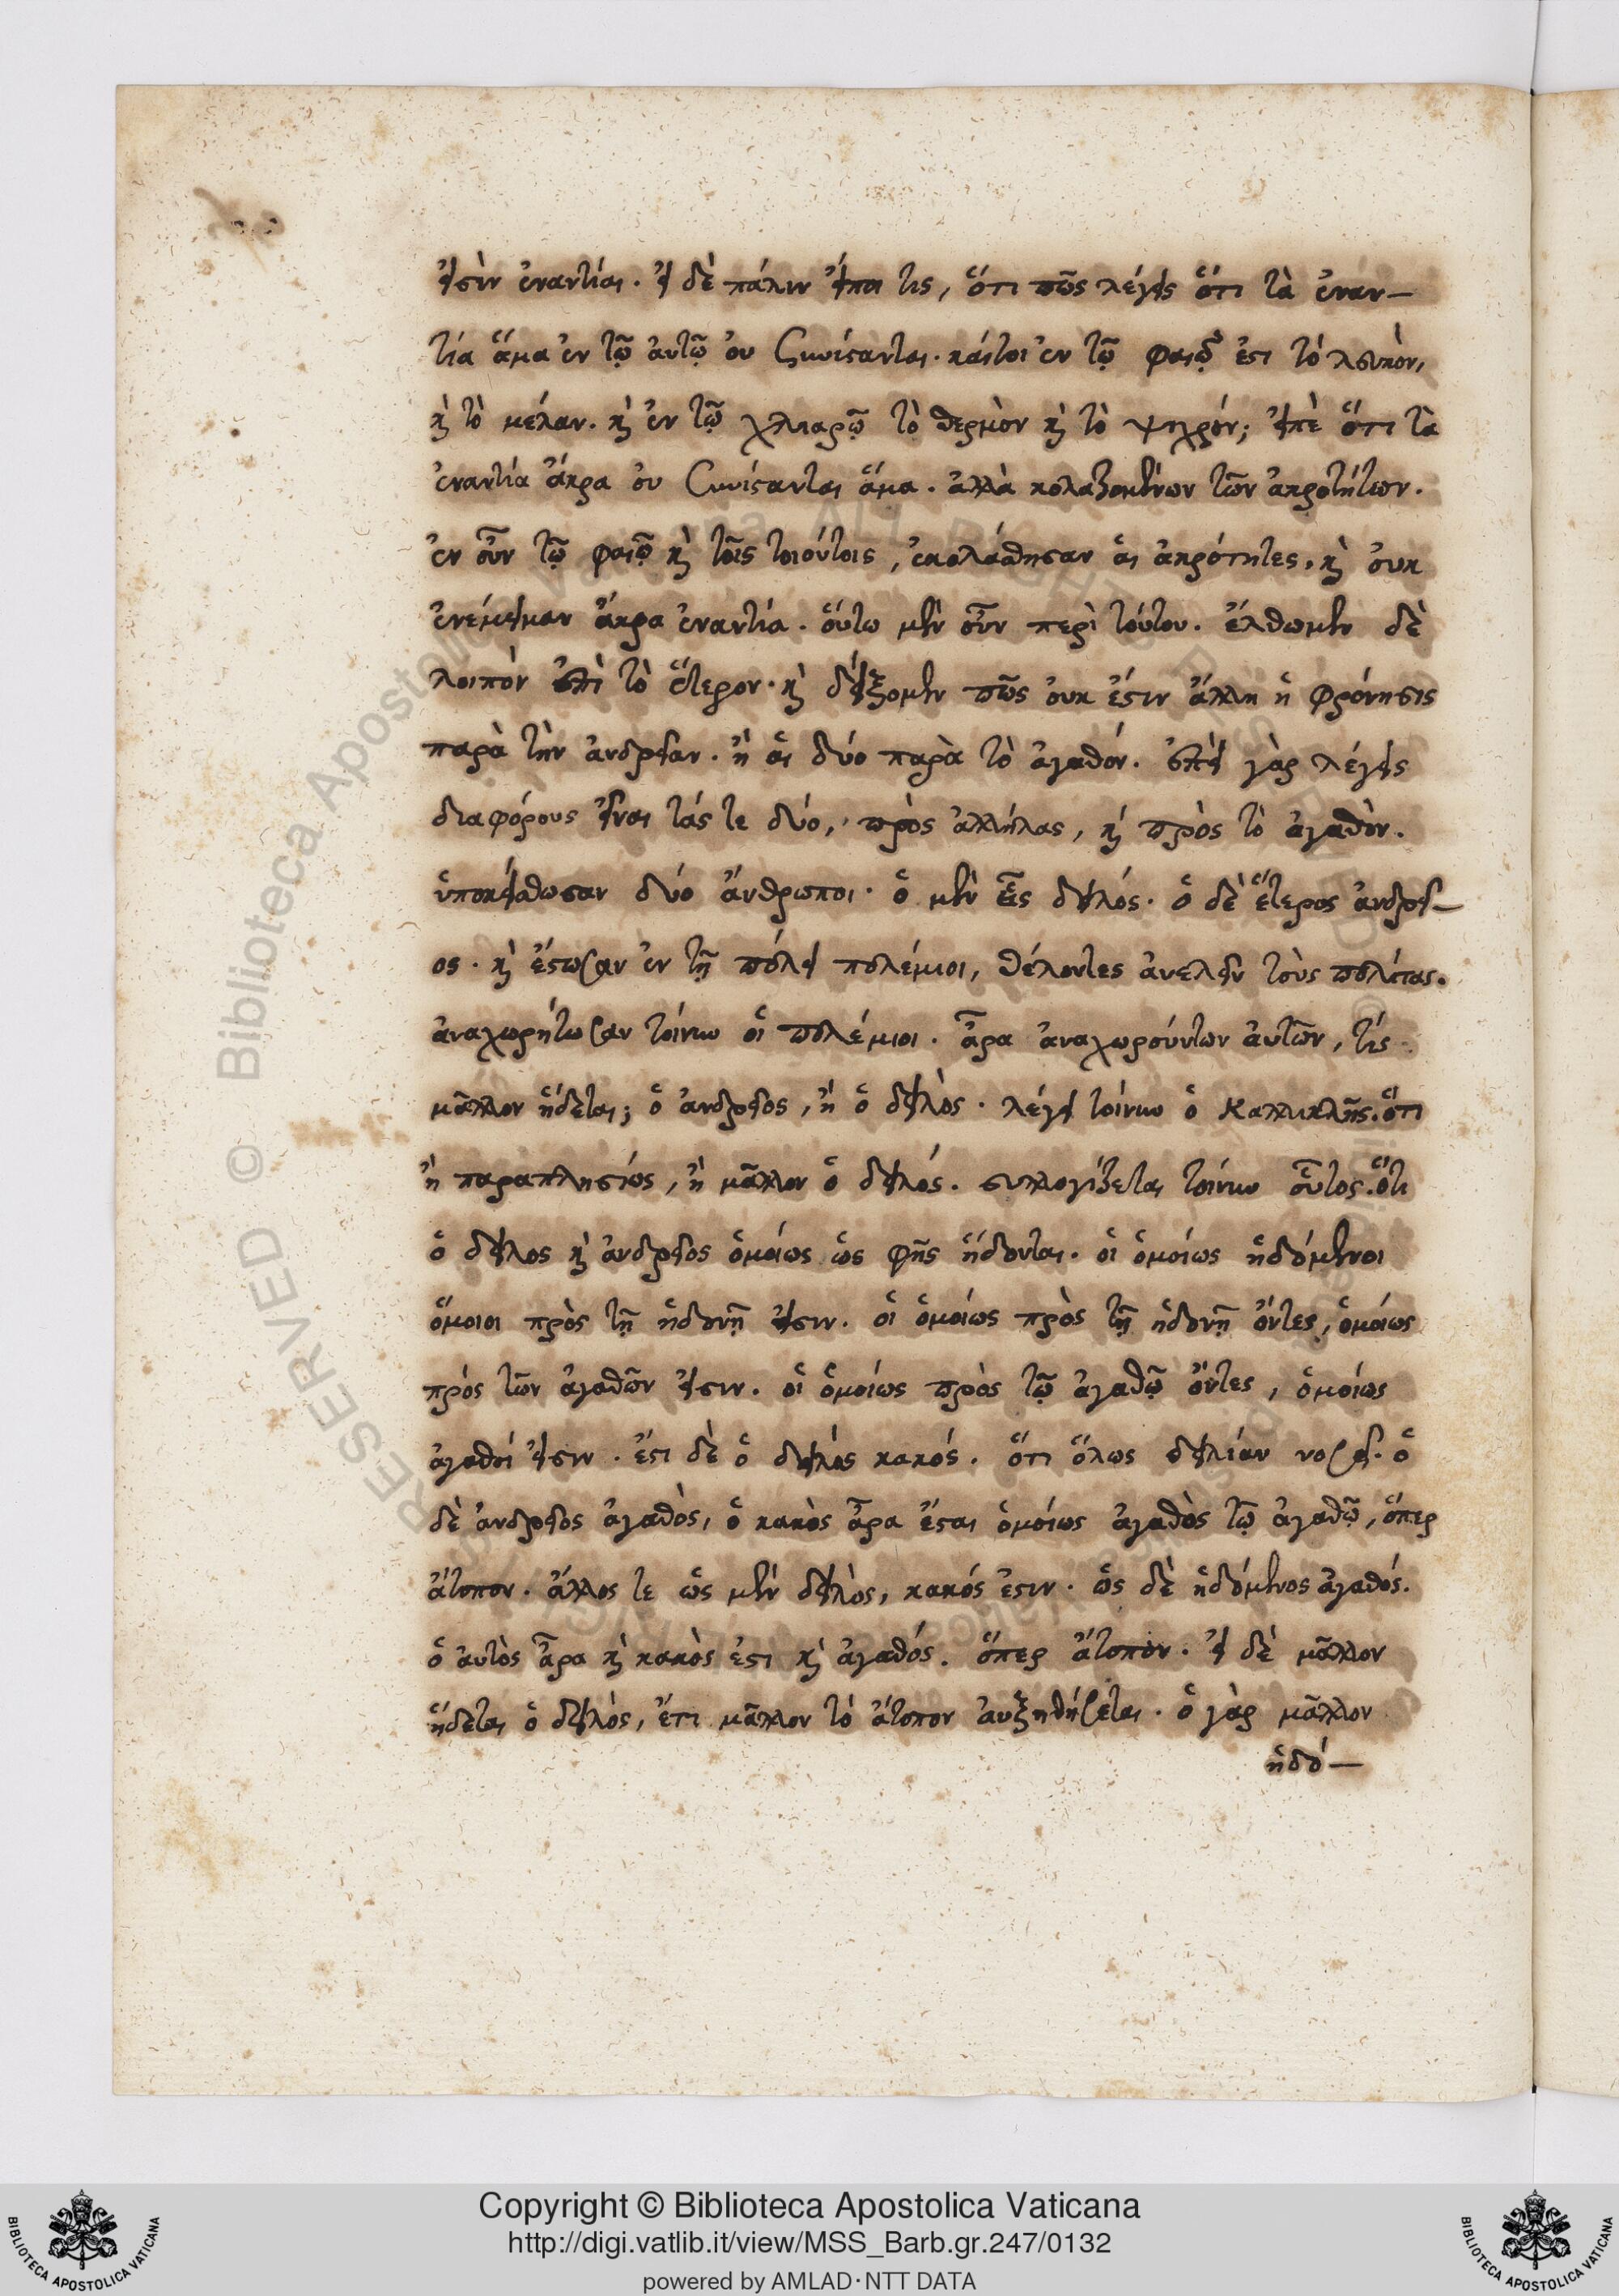 εἰσὶν ἐναντίαι. εἰ δὲ πάλιν εἴποι τις, ὅτι πῶς λέγεις ὅτι τὰ ἐναν—
τία ἅμα ἐν τῷ αὐτῷ οὐ συνίστανται. καίτοι ἐν τῷ φαιῷ ἐστι τὸ λευκὸν,
καὶ τὸ μέλαν. καὶ ἐν τῷ χλιαρῷ τὸ θερμὸν καὶ τὸ ψυχρόν; εἰπὲ ὅτι τὰ
ἐναντία ἄκρα οὐ συνίστανται ἅμα. ἀλλὰ κολαζομένων τῶν ἀκροτήτων.
ἐν οὖν τῷ φαιῷ καὶ τοῖς τοιούτοις, ἐκολάσθησαν αἱ ἀκρότητες. καὶ οὐκ
ἐνέμειναν ἄκρα ἐναντία. οὕτω μὲν οὖν περὶ τούτου. ἔλθωμεν δὲ
λοιπὸν ἐπὶ τὸ ἕτερον. καὶ δείξομεν πῶς οὐκ ἔστιν ἄλλη ἡ φρόνησις
παρὰ τὴν ἀνδρείαν. ἢ αἱ δύο παρὰ τὸ ἀγαθόν. ἐπεὶ γὰρ λέγεις
διαφόρους εἶναι τάς τε δύο, πρὸς ἀλλήλας, καὶ πρὸς τὸ ἀγαθὸν.
ὑποκείσθωσαν δύο ἄνθρωποι. ὁ μὲν εἷς δειλός. ὁ δὲ ἕτερος ἀνδρεῖ—
ος. καὶ ἔστωσαν ἐν τῇ πόλει πολέμιοι, θέλοντες ἀνελεῖν τοὺς πολίτας.
ἀναχωρήτωσαν τοίνυν οἱ πολέμιοι. ἆρα ἀναχωρούντων αὐτῶν, τίς
μᾶλλον ἥδεται; ὁ ἀνδρεῖος, ἢ ὁ δειλὸς. λέγει τοίνυν ὁ Καλλικλῆς. ὅτι
ἢ παραπλησίως, ἢ μᾶλλον ὁ δειλός. συλλογίζεται τοίνυν οὗτος. ὅτι
ὁ δειλος καὶ ἀνδρεῖος ὁμοίως ὡς φῂς ἥδονται. οἱ ὁμοίως ἡδόμενοι
ὅμοιοι πρὸς τῇ ἡδονῇ εἰσιν. οἱ ὁμοίως πρὸς τῇ ἡδονῇ ὄντες, ὁμοίως
πρὸς τῶν ἀγαθῶν εἰσιν. οἱ ὁμοίως πρὸς τῷ ἀγαθῷ ὄντες, ὁμοίως
ἀγαθοί εἰσιν. ἔστι δὲ ὁ δειλὸς κακός. ὅτι ὅλως δειλίαν νοσεῖ. ὁ
δὲ ἀνδρεῖος ἀγαθὸς, ὁ κακὸς ἆρα ἔσται ὁμοίως ἀγαθὸς τῷ ἀγαθῷ, ὅπερ
ἄτοπον. ἄλλος τε ὡς μὲν δειλὸς, κακός ἐστιν. ὡς δὲ ἡδόμενος ἀγαθός.
ὁ αὐτὸς ἆρα καὶ κακὸς ἐστι καὶ ἀγαθός. ὅπερ ἄτοπον. εἰ δὲ μᾶλλον
ἥδεται ὁ δειλός, ἔτι μᾶλλον τὸ ἄτοπον αὐξηθήσεται. ὁ γὰρ μᾶλλον
ἡδό—
Copyright © Biblioteca Apostolica Vaticana
http://digi.vatlib.it/view/MSS_Barb.gr.247/0132
powered by AMLAD·NTT DATA